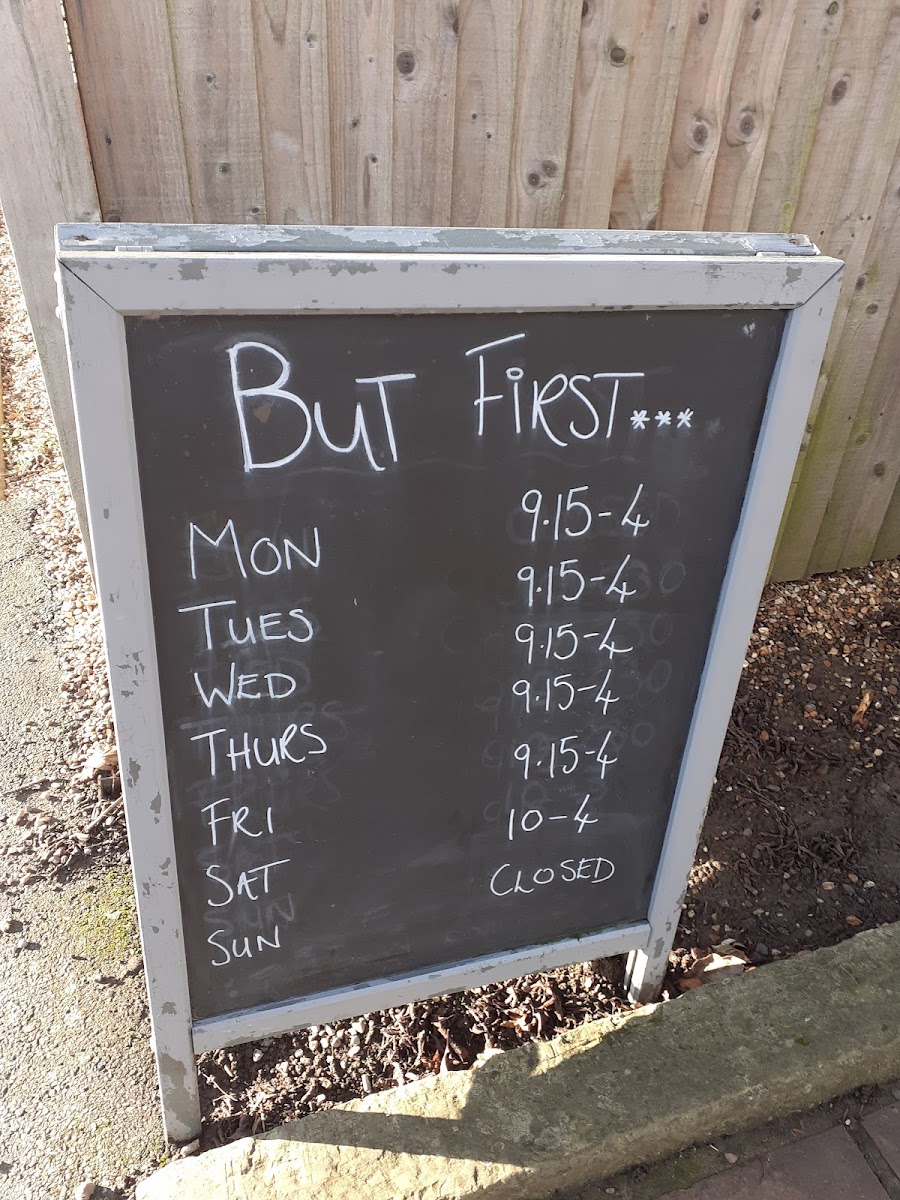 BUT FiRST***
MON 9.15-4
TUES 9.15-4
WED 9.15-4
THURS 9.15-4
FRI 9.15-4
SAT 10-4
SUN CLOSED